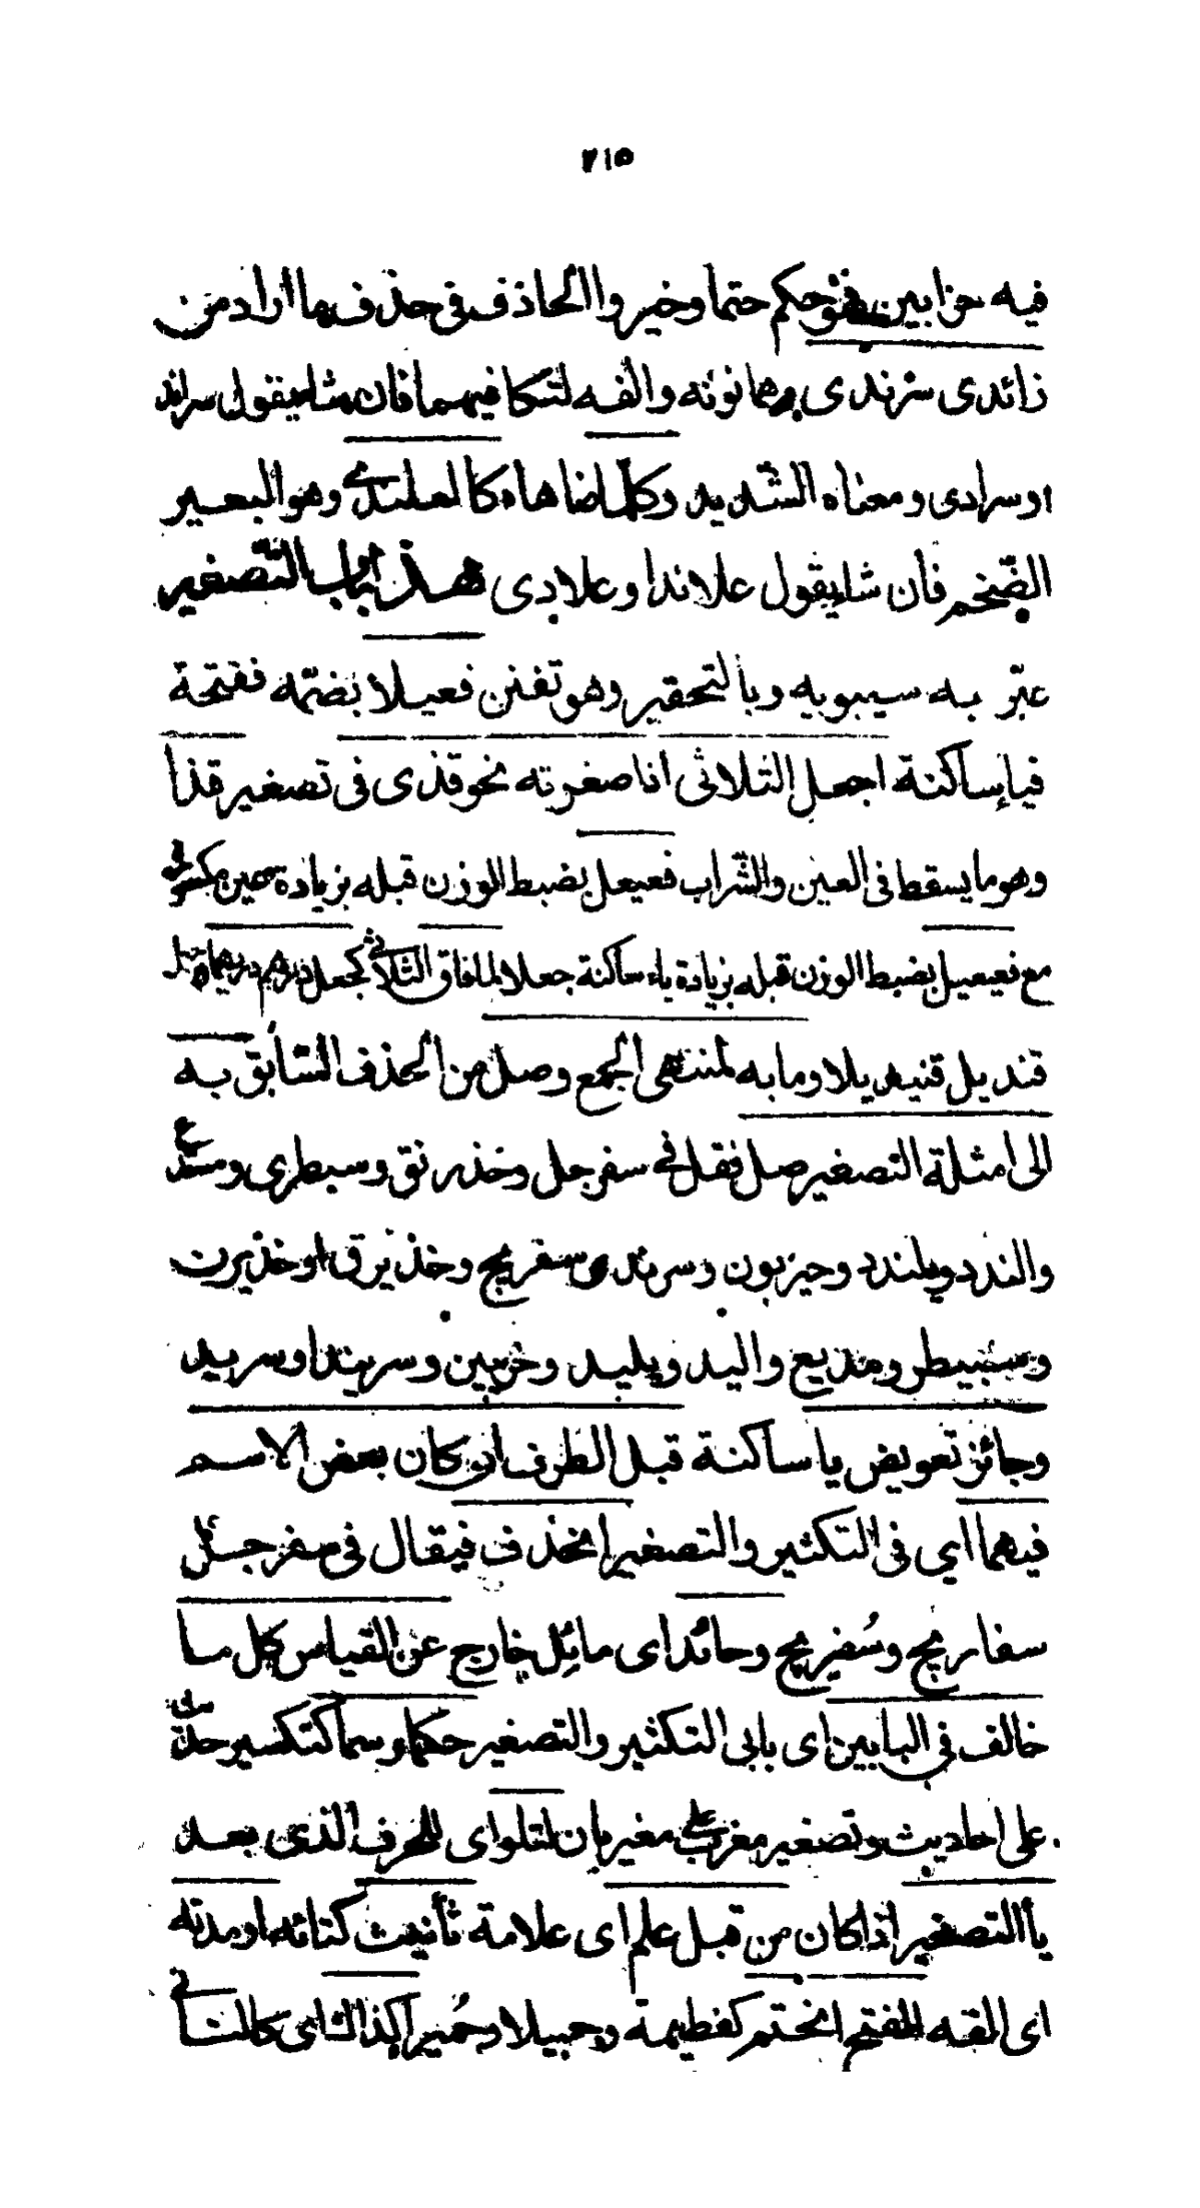 ٢١٥
فيه حزابين فهو حكم حتما وخيروا الحاذف في حذف ما اراد من
زائدى سرندى وهما نونه والفه لتكافيهما فان شا يقول سراند
او سرادى ومعناه الشديد وكلما ضاهاه كالعلندى وهو البعير
الضخم فان شا يقول علاندا وعلادى هذا باب التصغير
عبّر به سيبويه وبالتحقير وهو تفنن فعيلا بضمّه ففتحة
فيا ساكنة اجعل الثلاثى اذا صغرته نحو قذى فى تصغير قذا
وهو ما يسقط فى العين والشّراب فعيعل بضبط الوزن قبله بزيادة عين مكسورة
مع فعيعيل بضبط الوزن قبله بزيادة ياء ساكنة جعلا لما فاق الثلاثى كجعل درهم دريهما وجعل
قنديل قنيديلا وما به لمنتهى الجمع وصل من الحذف السّابق به
الى امثلة التصغير صل فقل فى سفرجل وخذرنق وسبطرى ومستدع
والندد ويلندد وحيزبون وسرندى سفيرج وخذيرق او خذيرن
وسبيطر ومديع واليد ويليد وحزيبين وسريندا وسريد
وجائز تعويض يا ساكنة قبل الطرف ان كان بعض الاسم
فيهما اي فى التكثير والتصغير انحذف فيقال فى سفرجل
سفاريج وسُفيريج وحائد اى مائل خارج عن القياس كل ما
خالف فى البابين اى بابى التكثير والتصغير حكما وسما كتكسير حديث
على احاديث وتصغير مغرب على مغيربان لتلو اى للحرف الذى بعد
يا التصغير اذا كان من قبل علم اى علامة تأنيث كتائه او مدته
اى الفه الفتح انحتم كفطيمة وحبيلا وحُميرا كذا الذى كالتاى